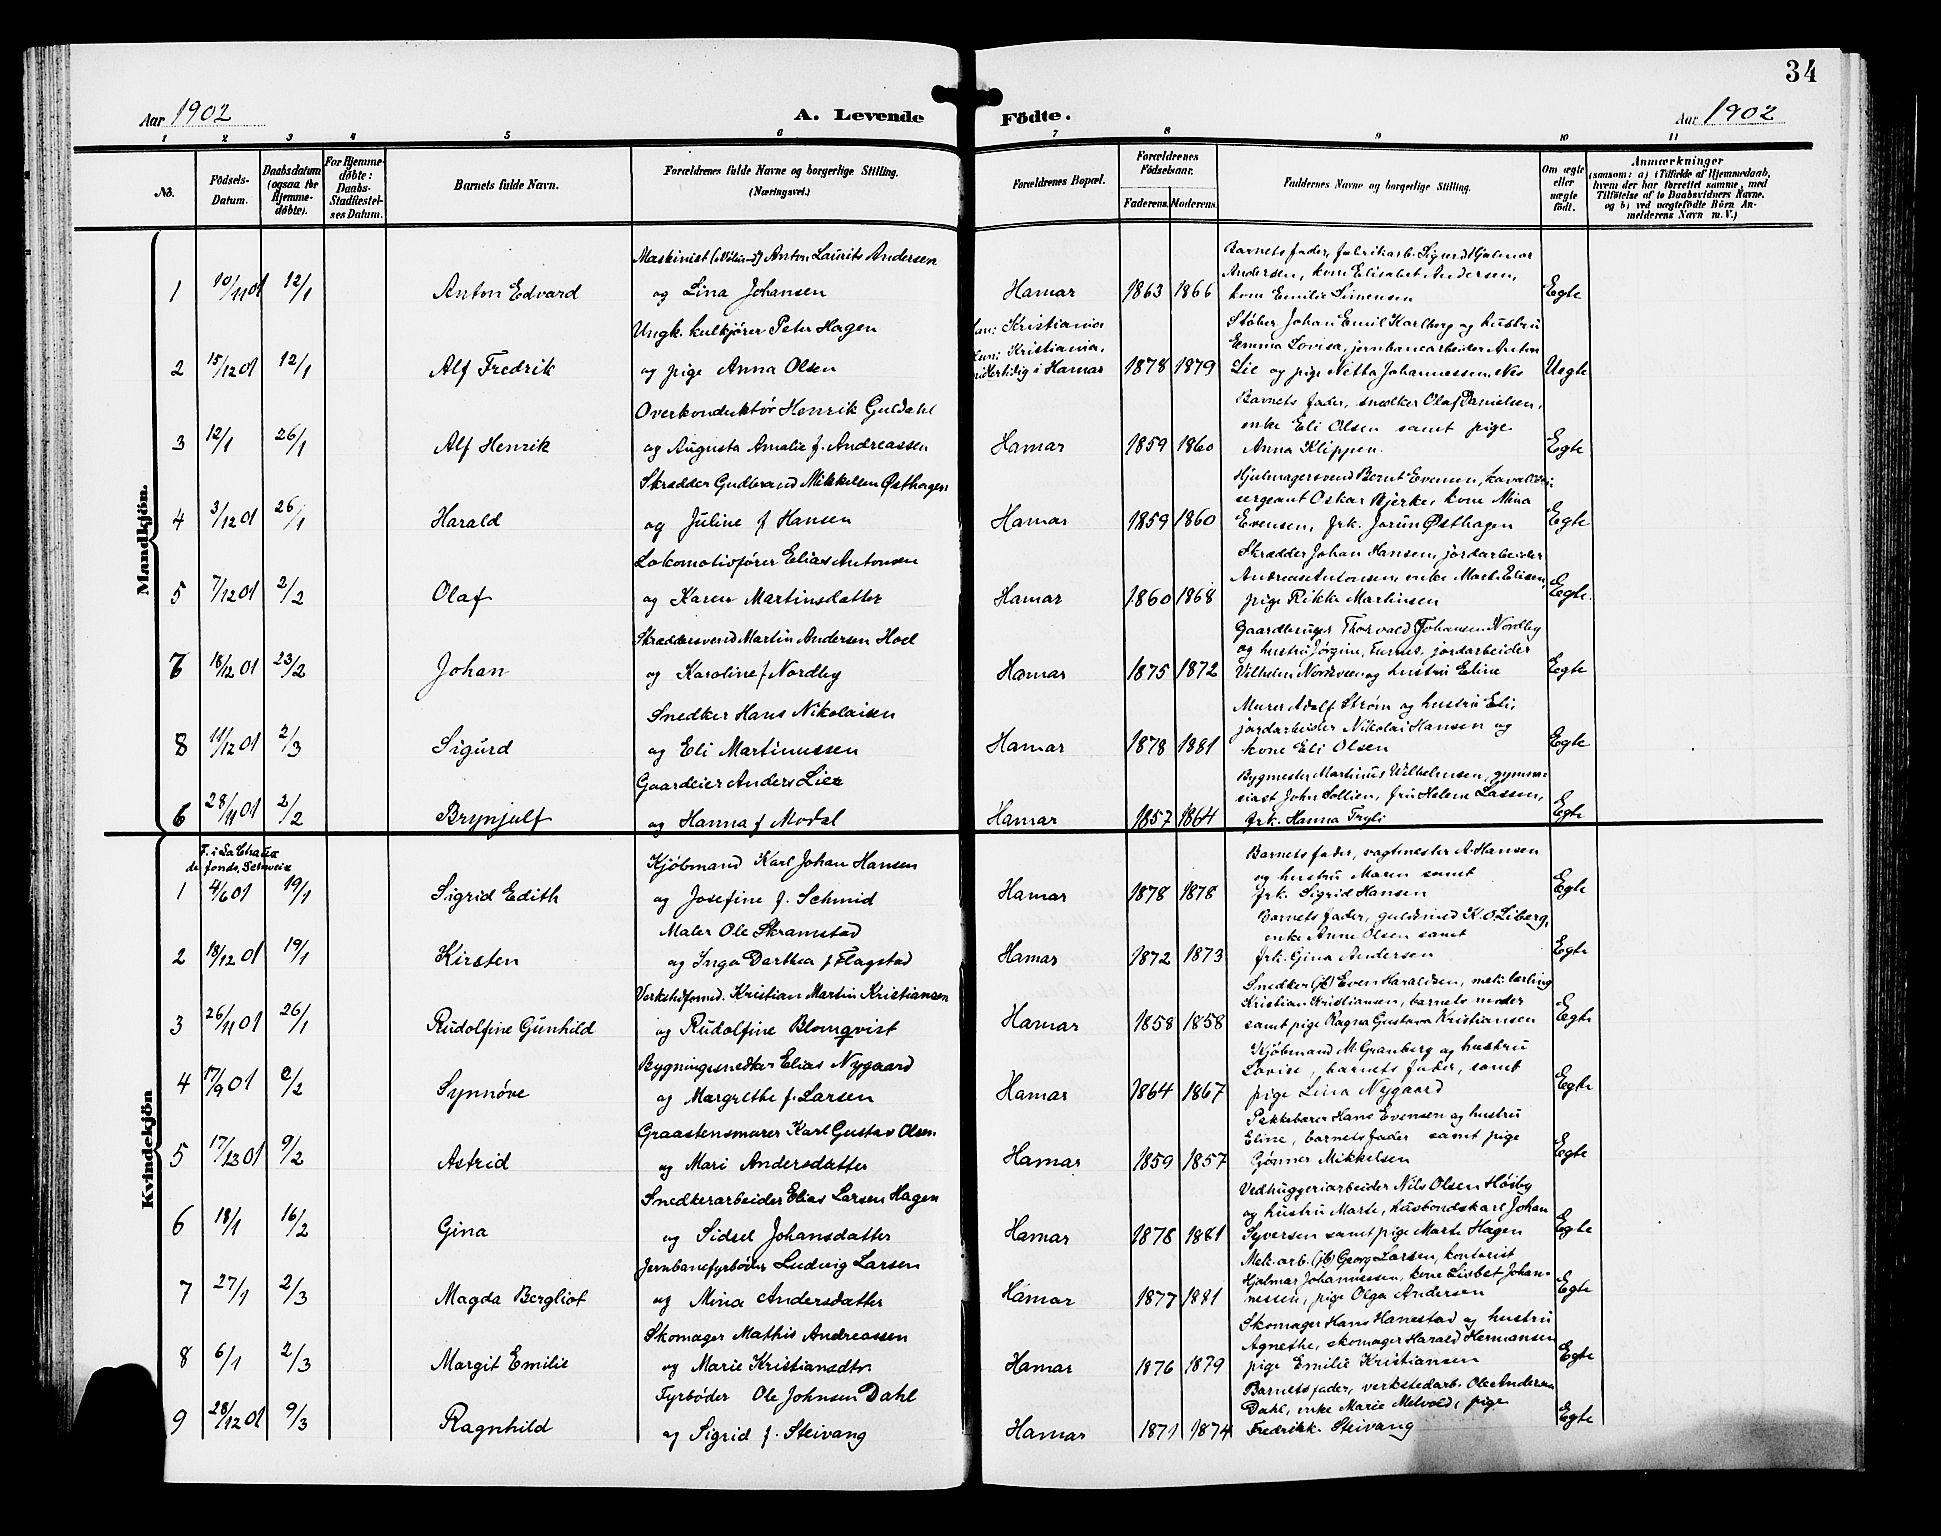 34
Aar 1902
A. Levende
Födte.
Aar 1902
1 2 3 4 5 6 7 8 9 10 11
No.
Födsels-
Datum.
Daabsdatum
(ogsaa for
Hjemme-
døbte).
For Hjemme-
døbte:
Daabs-
Stadfæstel-
ses Datum.
Barnets fulde Navn.
Forældrenes fulde Navne og borgerlige Stilling.
(Næringsvei.)
Forældrenes Bopæl.
Forældrenes
Födselsaar.
Faderens. Moderens.
Faddernes Navne og borgerlige Stilling.
Om ægte
eller
uægte
født.
Anmærkninger
(saasom: a) i Tilfælde af Hjemmedaab,
hvem der har forrettet samme, med
Tilføielse af to Daabsvidners Navne,
og b) ved uægtefødte Börn An-
melderens Navn m. V.)
Mandkjön.
Maskinist Anton Laurits Andersen
1 10/11 01 12/1 Anton Edvard og Lina Johansen Hamar 1863 1866 Egte
Barnets fader, fabrikarb. Sigurd Hjalmar
Andersen, kone Elisabet Andersen,
kone Emilie Simensen
Ungk. kulkjører Peter Hagen
2 15/12 01 12/1 Alf Fredrik og pige Anna Olsen
Kristiania
Kristiania,
midlertidig i Hamar 1878 1879 Uegte
Støber Johan Emil Karlberg og hustru
Emma Lovisa, jernbanearbeider Anton
Lie og pige Netta Johannessen, Nes
Overkonduktør Henrik Guldahl
3 12/1 26/1 Alf Henrik og Augusta Amalie f. Andreassen Hamar 1859 1860 Egte
Barnets fader, snedker Olaf Danielsen,
enke Eli Olsen samt pige
Anna Klippen.
Skrædder Gudbrand Mikkelsen Østhagen
4 3/12 01 26/1 Harald og Juline f Hansen Hamar 1859 1860 Egte
Hjulmagersvend Bernt Evensen, kavalleri
sergeant Oskar Bjerke, kone Mina
Evensen, frk. Jorun Østhagen
Lokomotivfører Elias Antonsen
5 7/12 01 2/2 Olaf og Karen Martinsdatter Hamar 1860 1868 Egte.
Skrædder Johan Hansen, jordarbeider
Andreas Antonsen, enke Mart. Elisen,
pige Rikke Martinsen
Skræddersvend Martin Andersen Hoel
7 18/12 01 23/2 Johan og Karoline f Nordby Hamar 1875 1872 Egte
Gaardbruger Thorvald Johansen Nordby
og hustru Jørgine, Furnes, jordarbeider
Vilhelm Nordsveen og hustru Eline
Snedker Hans Nikolaisen
8 11/12 01 2/3 Sigurd og Eli Martinussen Hamar 1878 1881 Egte
Murer Adolf Strøm og hustru Eli,
jordarbeider Nikolai Hansen og
kone Eli Olsen
Gaardeier Anders Lie
6 28/11 01 2/2 Brynjulf og Hanna f Modal Hamar 1857 1864 Egte
Bygmester Martinus Wilhelmsen, gymna-
siast John Sollien, fru Helene Lassen,
frk. Hanna Tryli
Kvindekjön
F. i La Chaux
de fonds, Schweiz
Kjøbmand Karl Johan Hansen
1 4/6 01 19/1 Sigrid Edith og Josefine f. Schmid Hamar 1878 1878 Egte
Barnets fader, vagtmester A. Hansen
og hustru Maren samt
frk. Sigrid Hansen
Maler Ole Skramstad
2 18/12 01 19/1 Kirsten og Inga Dorthea f Flagstad Hamar 1872 1873 Egte
Barnets fader, guldsmed K. O. Liberg,
enke Anne Olsen samt
frk. Gina Andersen
Verkstedformd. Kristian Martin Kristiansen
3 26/11 01 26/1 Rudolfine Gunhild og Rudolfine Blomqvist Hamar 1858 1858 Egte
Snedker (jb) Even Haraldsen, mek. lærling
Kristian Kristiansen, barnets moder
samt pige Ragna Gustava Kristiansen
Bygningssnedker Elias Nygaard
4 17/9 01 2/2 Synnøve og Margrethe f. Larsen Hamar 1864 1867 Egte
Kjøbmand M. Granberg og hustru
Lovise, barnets fader, samt
pige Lina Nygaard
Graastensmurer Karl Gustav Olsen
5 17/12 01 9/2 Astrid og Mari Andersdatter Hamar 1859 1857 Egte
Pakkebærer Hans Evensen og hustru
Eline, barnets fader samt pige
Gønner Mikkelsen
Snedkerarbeider Elias Larsen Hagen
6 18/1 16/2 Gina og Sidsel Johansdatter Hamar 1878 1881 Egte
Vedhuggeriarbeider Nils Olsen Høsby
og hustru Marte, husbondskarl Johan
Syversen samt pige Marte Hagen
Jernbanefyrbøder Ludvig Larsen
7 27/1 2/3 Magda Bergliot og Mina Andersdatter Hamar 1877 1881 Egte
Mek. arb. (jb) Georg Larsen, kontorist
Hjalmar Johannessen, kone Lisbet Johan-
nessen, pige Olga Andersen
Skomager Mathis Andreassen
8 6/1 2/3 Margit Emilie og Marie Kristiansdtr Hamar 1876 1879 Egte
Skomager Hans Hanestad og hustru
Agnethe, skomager Harald Hermansen
pige Emilie Kristiansen
Fyrbøder Ole Johnsen Dahl
9 28/12 01 9/3 Ragnhild og Sigrid f. Steivang Hamar 1871 1874 Egte
Barnets fader, verkstedarb. Ole Andersen
Dahl, enke Marie Melvold, pige
Fredrikk. Steivang